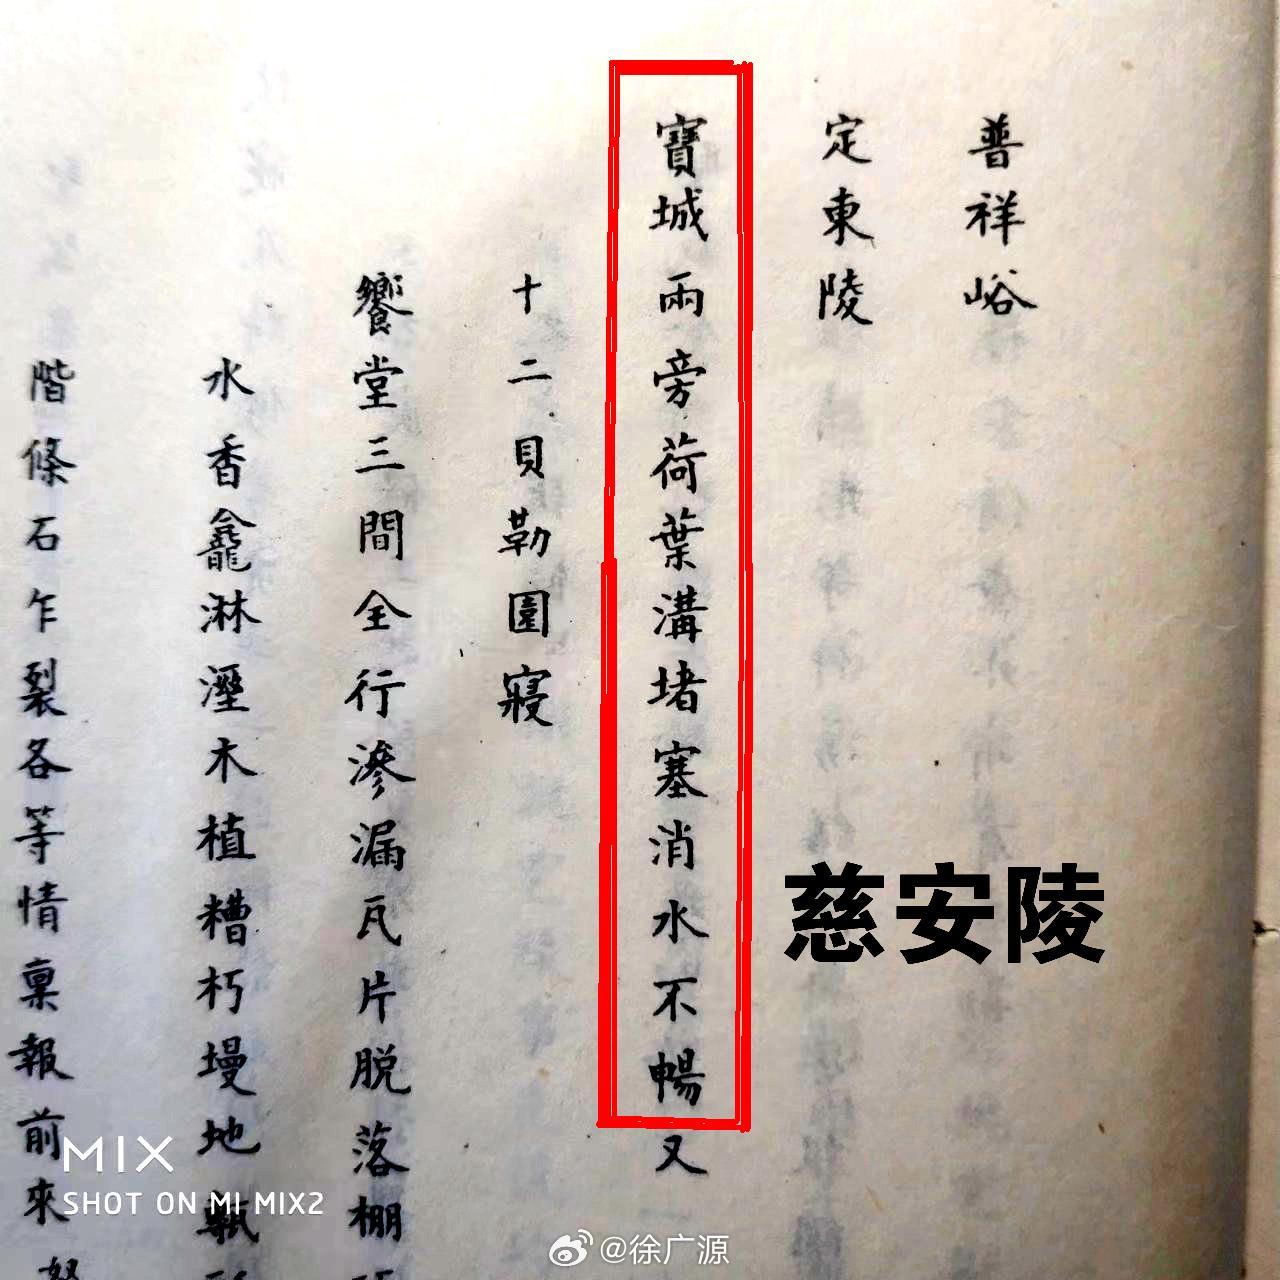 普祥峪
定東陵
寶城兩旁荷葉溝堵塞消水不暢又
十二貝勒園寢
饗堂三間全行滲漏瓦片脱落棚
水香龕淋溼木植糟朽墁地
階條石乍裂各等情稟報前來
慈安陵
MIX
SHOT ON MI MIX2
@徐广源